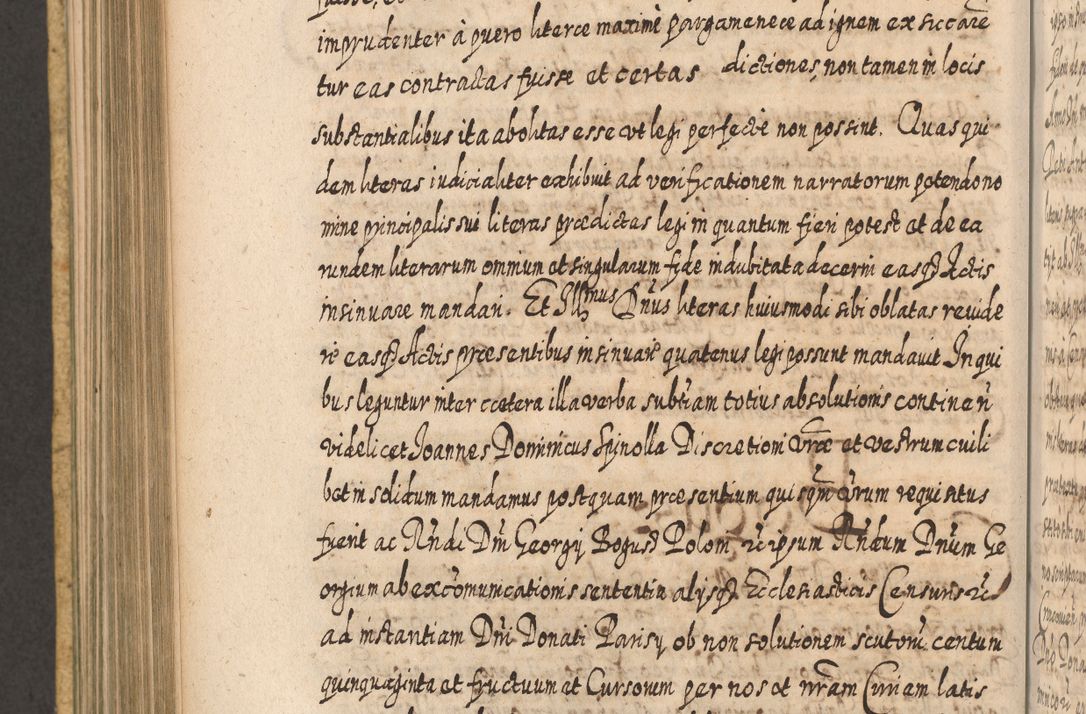 imprudenter à puero literæ maximè pargameneæ ad ignem exsiccare
tur eas contractas fuisse et certas dictiones, non tamen in locis
substantialibus ita abolitas esse vt legi perfectè non possint. Quas qui
dem literas iudicialiter exhibuit ad verificationem narratorum petendo no
mine principalis sui literas prædictas legi in quantum fieri potest et de ea
rundem literarum omnium et singularum fide indubitata decerni easq3 Actis
insinuare mandari. Et Illmus Dn̄us literas huiusmodi sibi oblatas revide
ri easq3 Actis præsentibus insinuari quatenus legi possunt mandavit In qui
bus leguntur inter cætera illa verba substiam totius absolutionis continen̄
videlicet Joannes Dominicus Spinolla Discretioni vræ et vestrum cuili
bet in solidum mandamus postquam præsentium quisqm̄ vrum requisitus
fuerit ac Rn̄di Dn̄i Georgij Bogusß Polom ipsum Rn̄dum Dn̄um Ge
orgium ab excōmunicationis sententia alijsq3 Ecclesiasticis Censuris
ad instantiam Dn̄i Donati Parisy ob non solutionem scutorū centum
quinquaginta et fructuum et Cursorum per nos et nr̄am Curiam latis